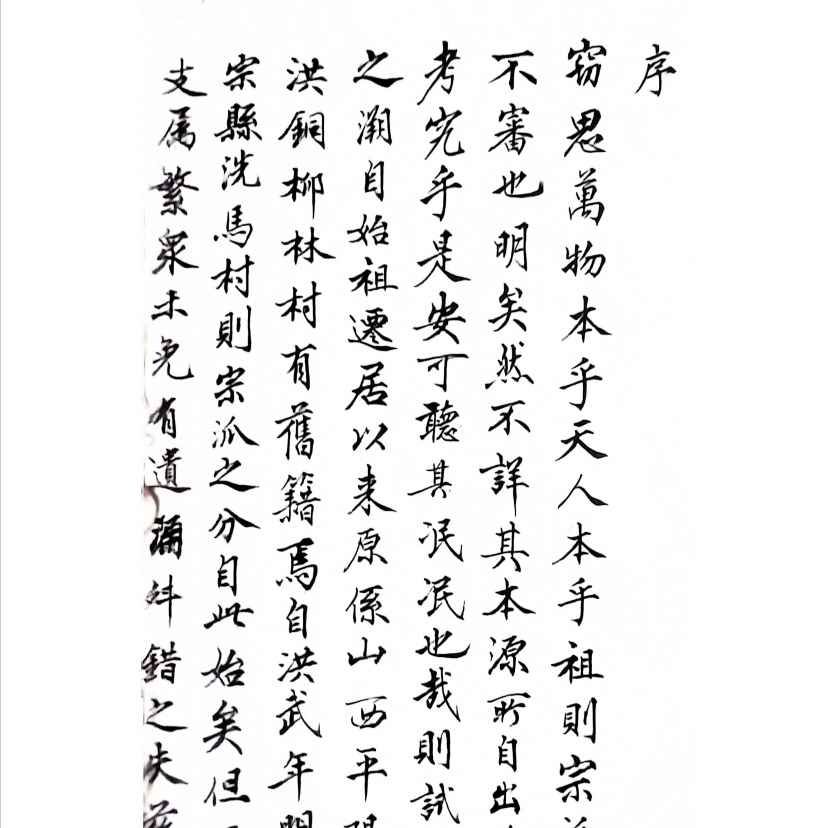 序
竊思萬物本乎天人本乎祖則宗
不審也明矣然不詳其本源所自出
考究乎是安可聽其泯泯也哉則試
之溯自始祖遷居以来原係山西平
洪銅柳林村有舊籍焉自洪武年
宗縣洗馬村則宗派之分自此始矣但
支属繁衆未免有遺漏舛錯之失